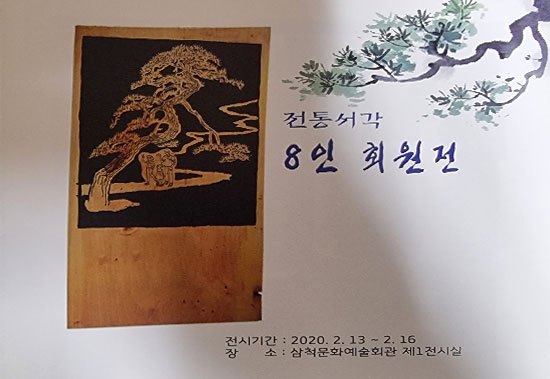 전통서각
8인 회원전
전시기간 : 2020. 2. 13 ~ 2. 16
장 소 : 삼척문화예술회관 제1전시실